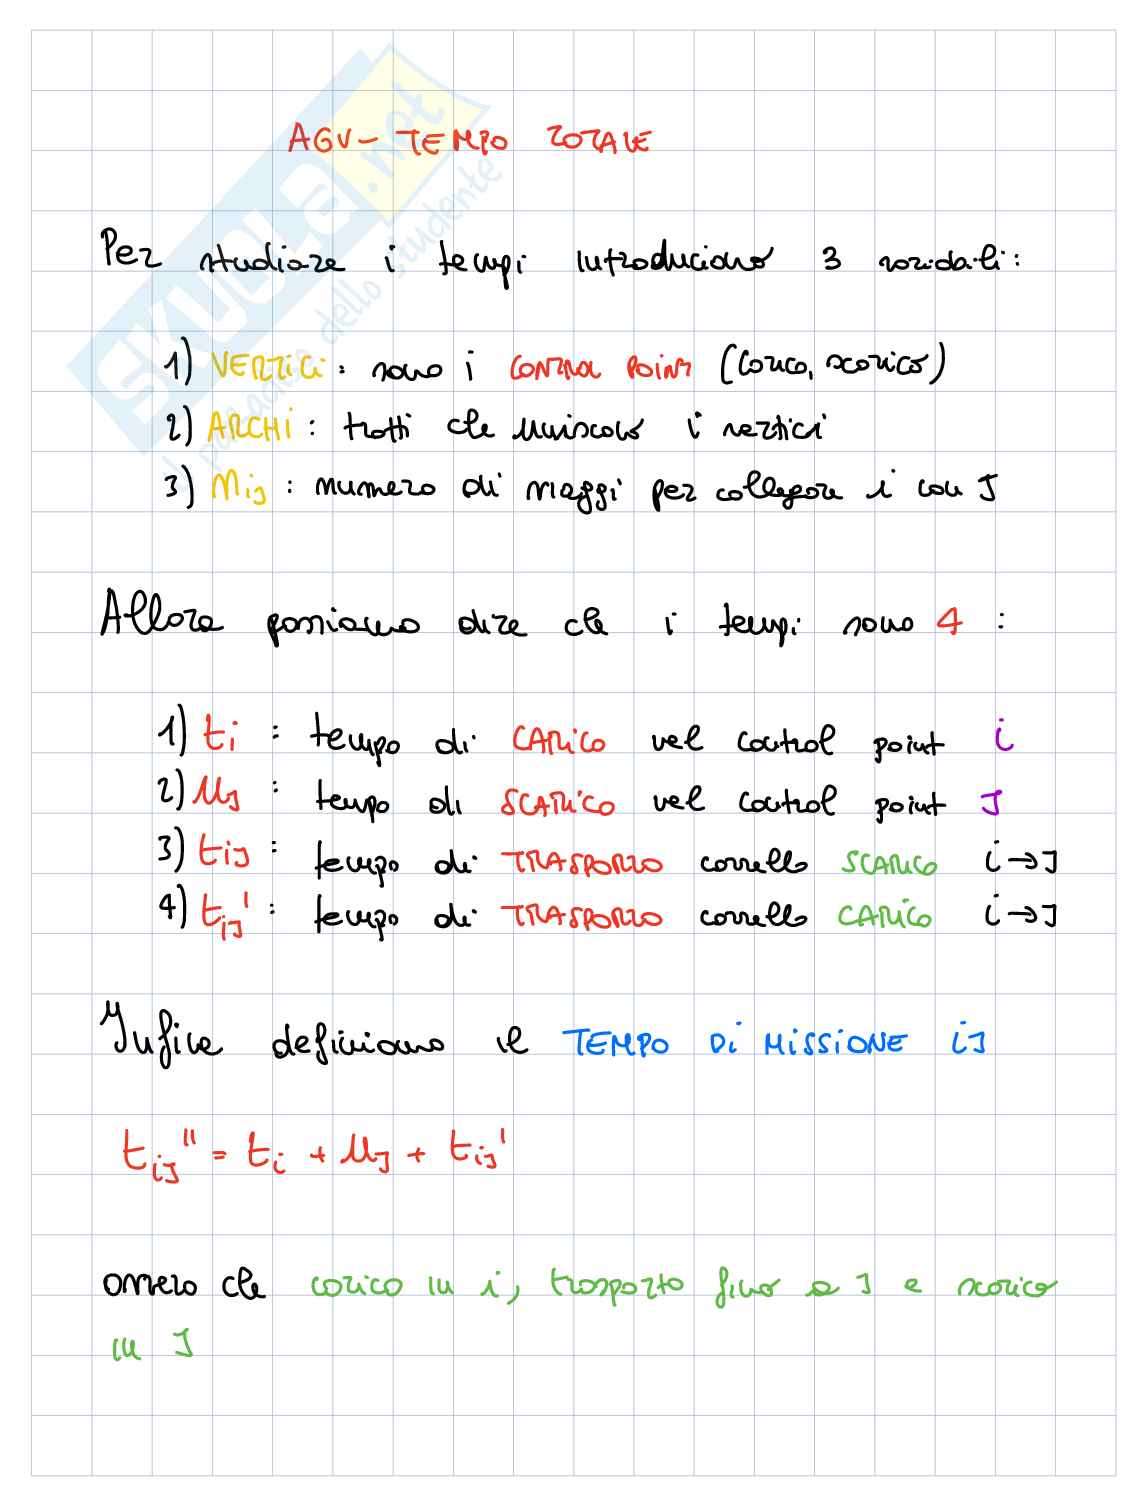 SKUOLA.net
il paradiso dello studente
AGV - TEMPO TOTALE
Per studiare i tempi introduciamo 3 variabili:
1) VERTICI: sono i CONTROL POINT (carico, scarico)
2) ARCHI: tratti che uniscono i vertici
3) Mij: numero di viaggi per collegare i con J
Allora possiamo dire che i tempi sono 4:
1) ti: tempo di CARICO nel control point i
2) uJ: tempo di SCARICO nel control point J
3) tiJ: tempo di TRASPORTO carrello SCARICO i→J
4) tiJ': tempo di TRASPORTO carrello CARICO i→J
Infine definiamo il TEMPO Di MISSIONE iJ
tiJ'' = ti + uJ + tiJ'
ovvero che carico in i, trasporto fino a J e scarico
in J